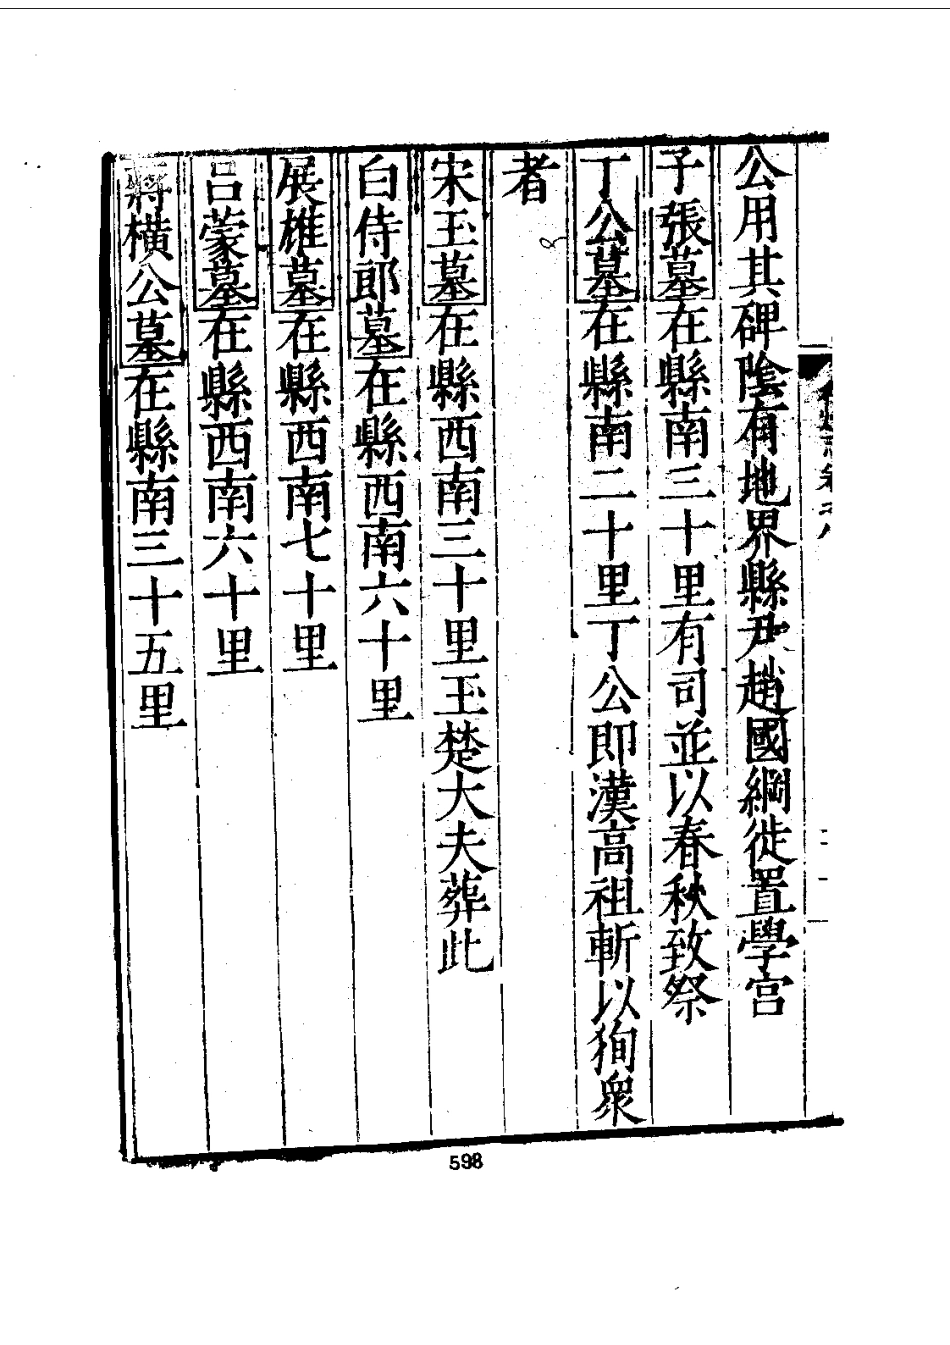 公用其碑陰有地界縣尹趙國綱徙置學宮
子張墓在縣南三十里有司並以春秋致祭
丁公墓在縣南二十里丁公即漢高祖斬以狥衆
者
宋玉墓在縣西南三十里玉楚大夫葬此
白侍郎墓在縣西南六十里
展雄墓在縣西南七十里
呂蒙墓在縣西南六十里
蔣橫公墓在縣南三十五里
598